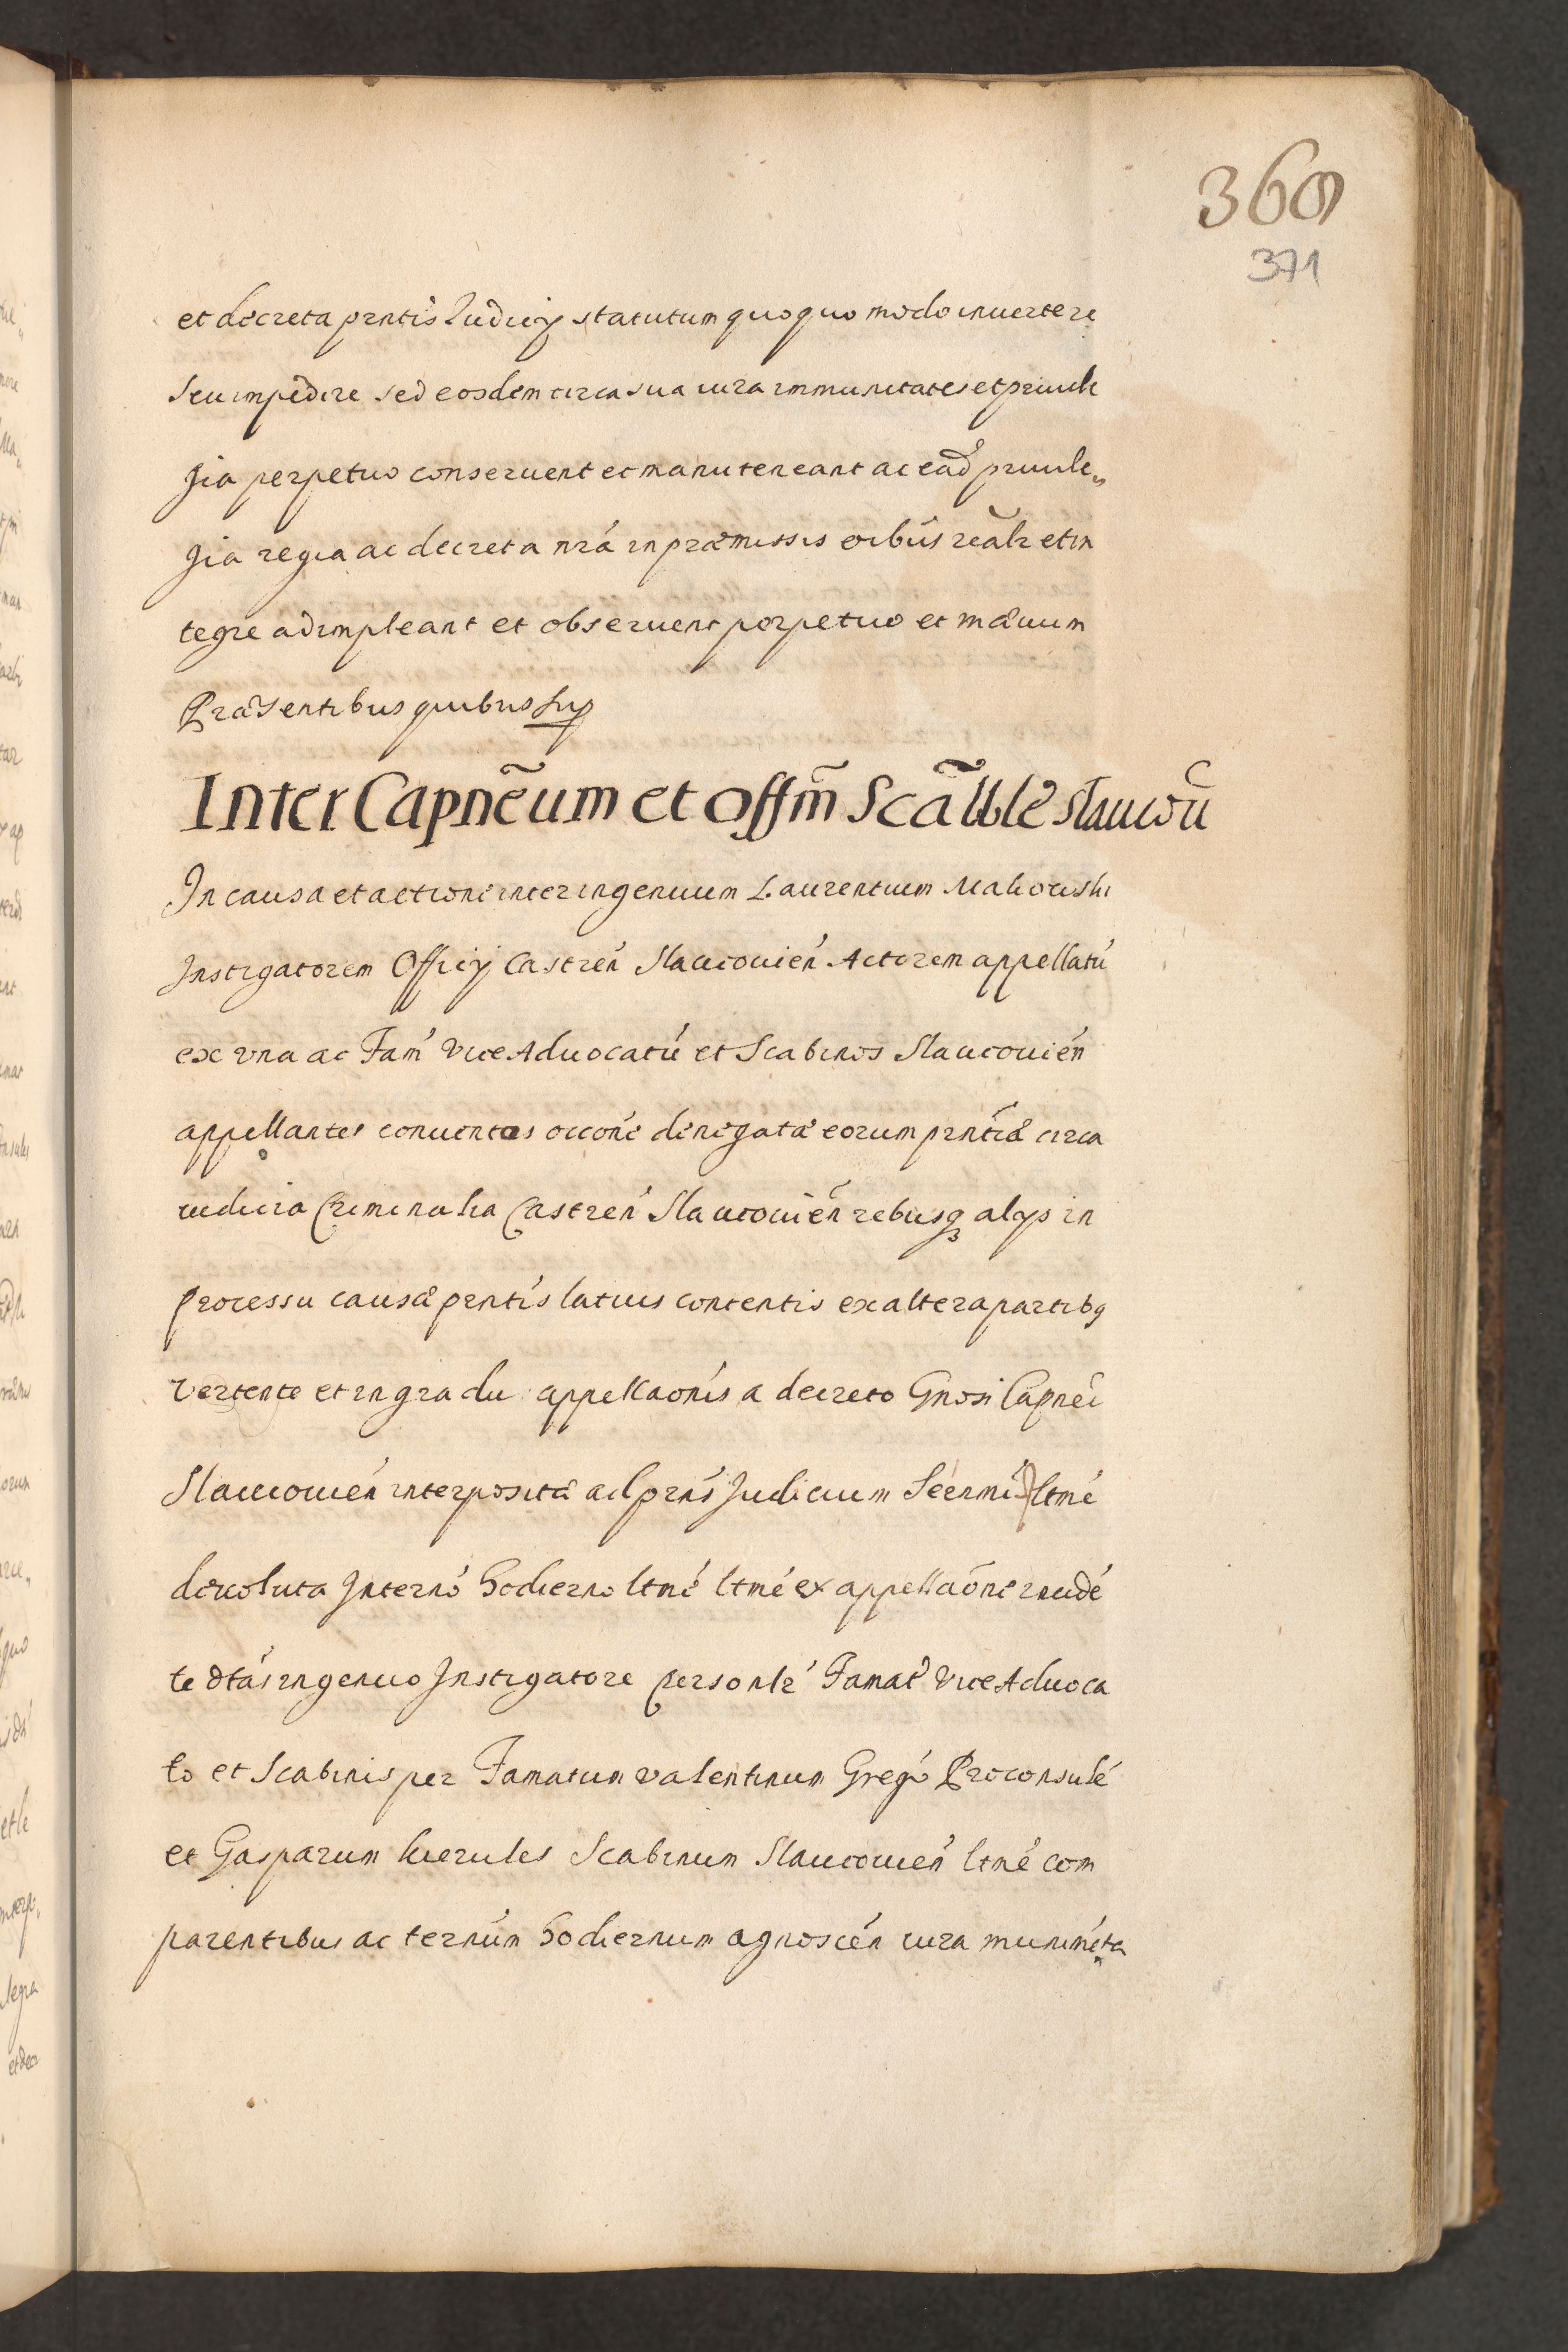 360
371
et decreta prntis Iudicij statutum quoquo modo inuertere
seu impedire sed eosdem circa sua iura immunitates et priuile
gia perpetuo conseruent et manuteneant ac ead priuile„
gia regia ac decreta nra in præmissis oibus realr et in
tegre adimpleant et obseruent perpetuo et in æuum
Præsentibus quibus
Inter Capnēum et Offm̄ Scāble Slaucoū
In causa et actione inter ingenuum Laurentium Makowski
Instigatorem Officij Castren Slaucouien Actorem appellatū
ex vna ac Fam Vice Aduocatū et Scabinos Slaucouien
appellantes conuentos occone denegatæ eorum prntiæ circa
iudicia Criminalia Castren Slaucouien rebusq alijs in
processu causæ prntis latius contentis ex altera partibq
vertente et in gradu appellaonis a decreto Gnosi Capnei
Slaucouien interposita ad prns Judicium Seenmi ltme
deuoluta In terno hodierno ltme ltme ex appellaone incide
te dtas ingenuo Instigatore personlr Famat Vice Aduoca
to et Scabinis per Famatum Valentinum Grego Proconsule
et Gasparum hierules Scabinum Slaucouien ltme com
parentibus ac ternum hodiernum agnoscen iura munimēta